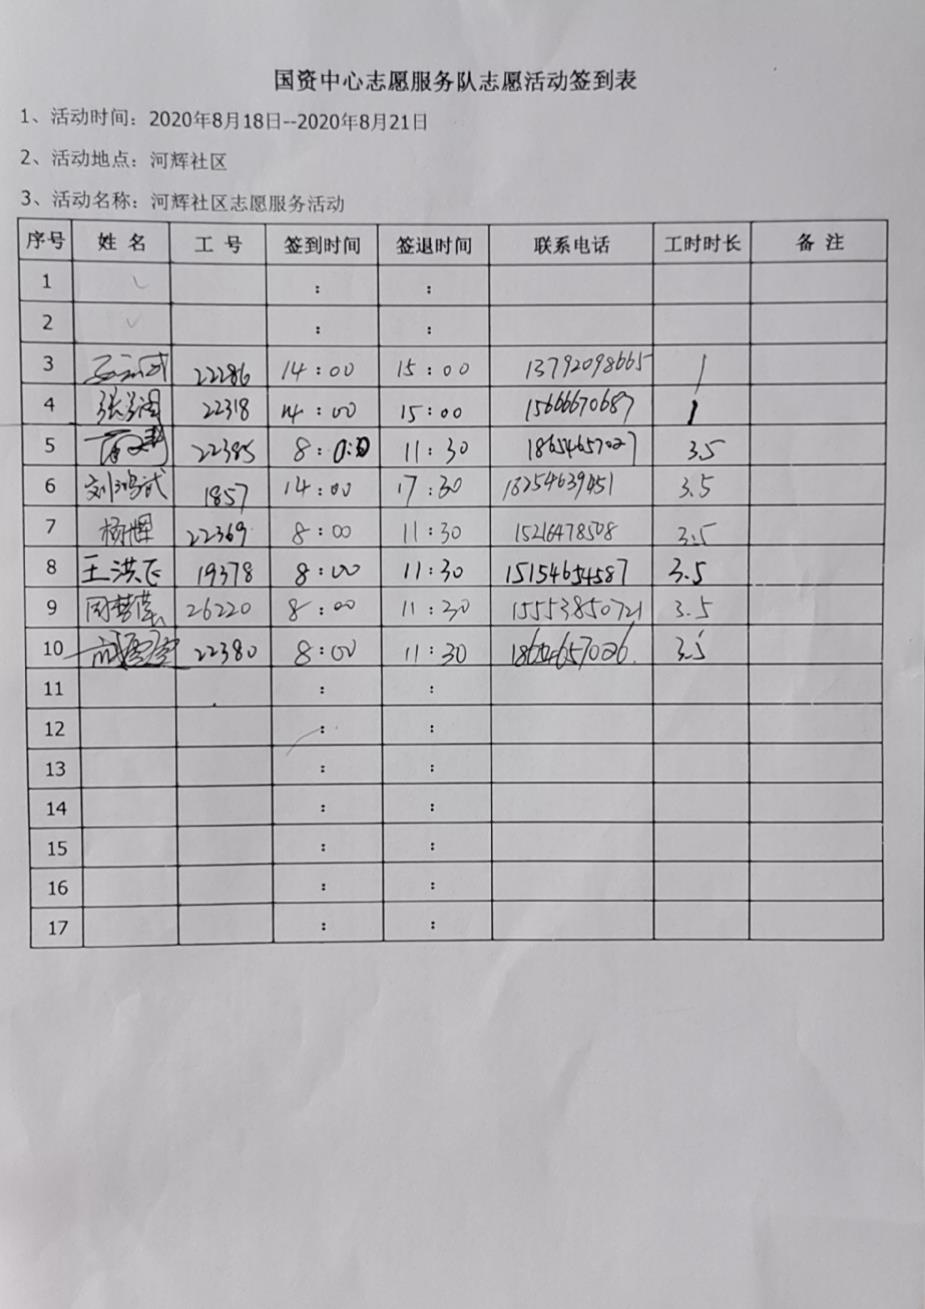 国资中心志愿服务队志愿活动签到表
1、活动时间：2020年8月18日--2020年8月21日
2、活动地点：河辉社区
3、活动名称：河辉社区志愿服务活动
序号 姓名 工号 签到时间 签退时间 联系电话 工时时长 备注
1 : :
2 : :
3 22286 14:00 15:00 13792098665 1
4 22318 14:00 15:00 15666670687 1
5 22385 8:00 11:30 18654657027 3.5
6 刘鸿武 1857 14:00 17:30 18254639451 3.5
7 杨辉 22369 8:00 11:30 15216478508 3.5
8 王洪飞 19378 8:00 11:30 15154654587 3.5
9 26220 8:00 11:30 15553850721 3.5
10 22380 8:00 11:30 3.5
11 : :
12 : :
13 : :
14 : :
15 : :
16 : :
17 : :